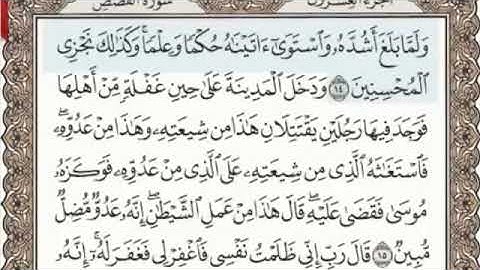 الجزء العشرون سورة القصص
وَلَمَّا بَلَغَ أَشُدَّهُۥ وَٱسْتَوَىٰٓ ءَاتَيْنَٰهُ حُكْمًا وَعِلْمًا ۚ وَكَذَٰلِكَ نَجْزِى
ٱلْمُحْسِنِينَ ١٤ وَدَخَلَ ٱلْمَدِينَةَ عَلَىٰ حِينِ غَفْلَةٍ مِّنْ أَهْلِهَا
فَوَجَدَ فِيهَا رَجُلَيْنِ يَقْتَتِلَانِ هَٰذَا مِن شِيعَتِهِۦ وَهَٰذَا مِنْ عَدُوِّهِۦ ۖ
فَٱسْتَغَٰثَهُ ٱلَّذِى مِن شِيعَتِهِۦ عَلَى ٱلَّذِى مِنْ عَدُوِّهِۦ فَوَكَزَهُۥ
مُوسَىٰ فَقَضَىٰ عَلَيْهِ ۖ قَالَ هَٰذَا مِنْ عَمَلِ ٱلشَّيْطَٰنِ ۖ إِنَّهُۥ عَدُوٌّ مُّضِلٌّ
مُّبِينٌ ١٥ قَالَ رَبِّ إِنِّى ظَلَمْتُ نَفْسِى فَٱغْفِرْ لِى فَغَفَرَ لَهُۥٓ ۚ إِنَّهُۥ